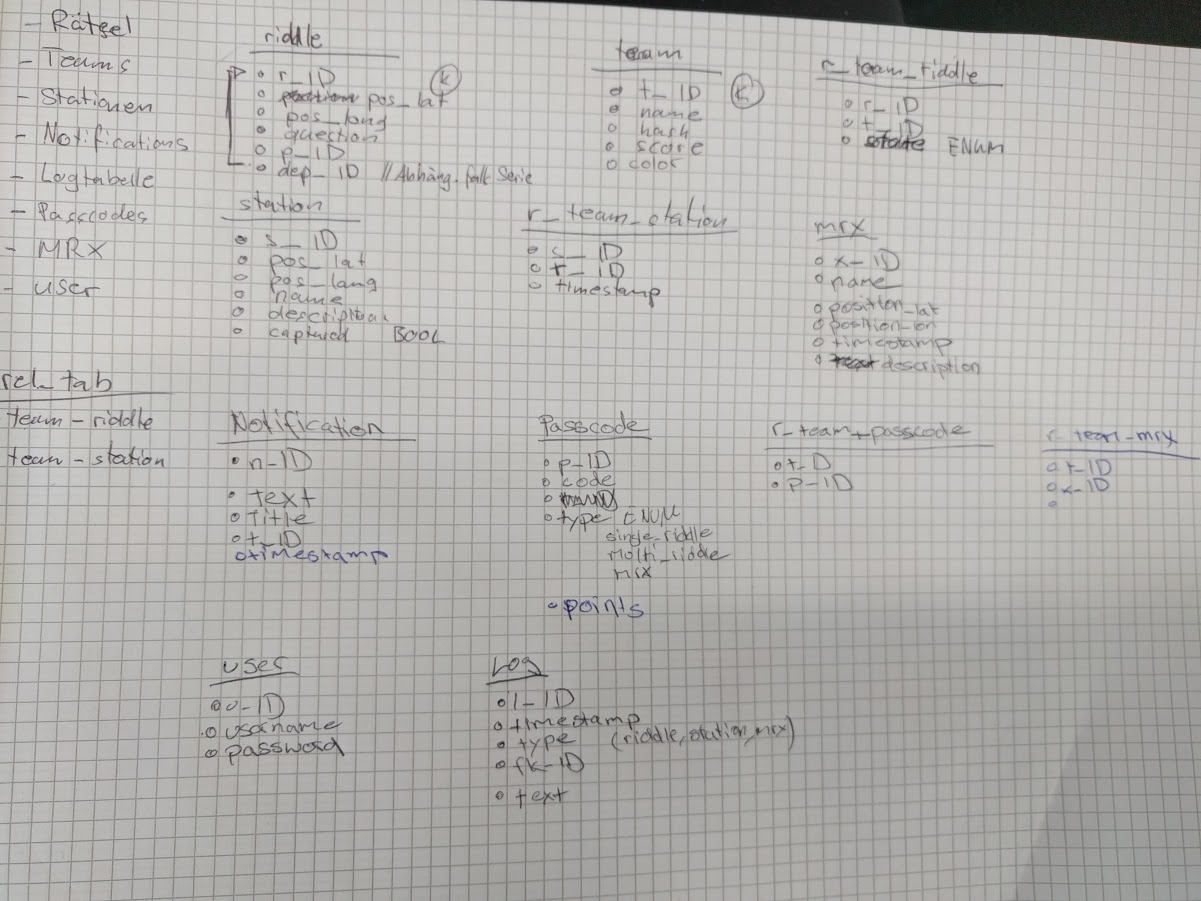 - Rätsel
- Teams
- Stationen
- Notifications
- Logtabelle
- Passcodes
- MRX
- user
rel_tab
team - riddle
team - station
riddle
r_ID
pos_lat
pos_long
question
p_ID
dep_ID // Abhäng. falls Serie
K
team
t_ID
name
hash
score
color
K
r_team_riddle
r_ID
t_ID
state ENUM
station
s_ID
pos_lat
pos_lang
name
description
captured BOOL
r_team_station
s_ID
t_ID
timestamp
mrx
x-ID
name
position_lat
position_lon
timestamp
description
Notification
n-ID
text
Title
t_ID
timestamp
Passcode
p-ID
code
type ENUM
single_riddle
multi_riddle
mrx
points
r_team_passcode
t-D
p-ID
r_team_mrx
t-ID
x-ID
user
u-ID
username
password
Log
l-ID
timestamp
type (riddle, station, mrx)
fk-ID
text